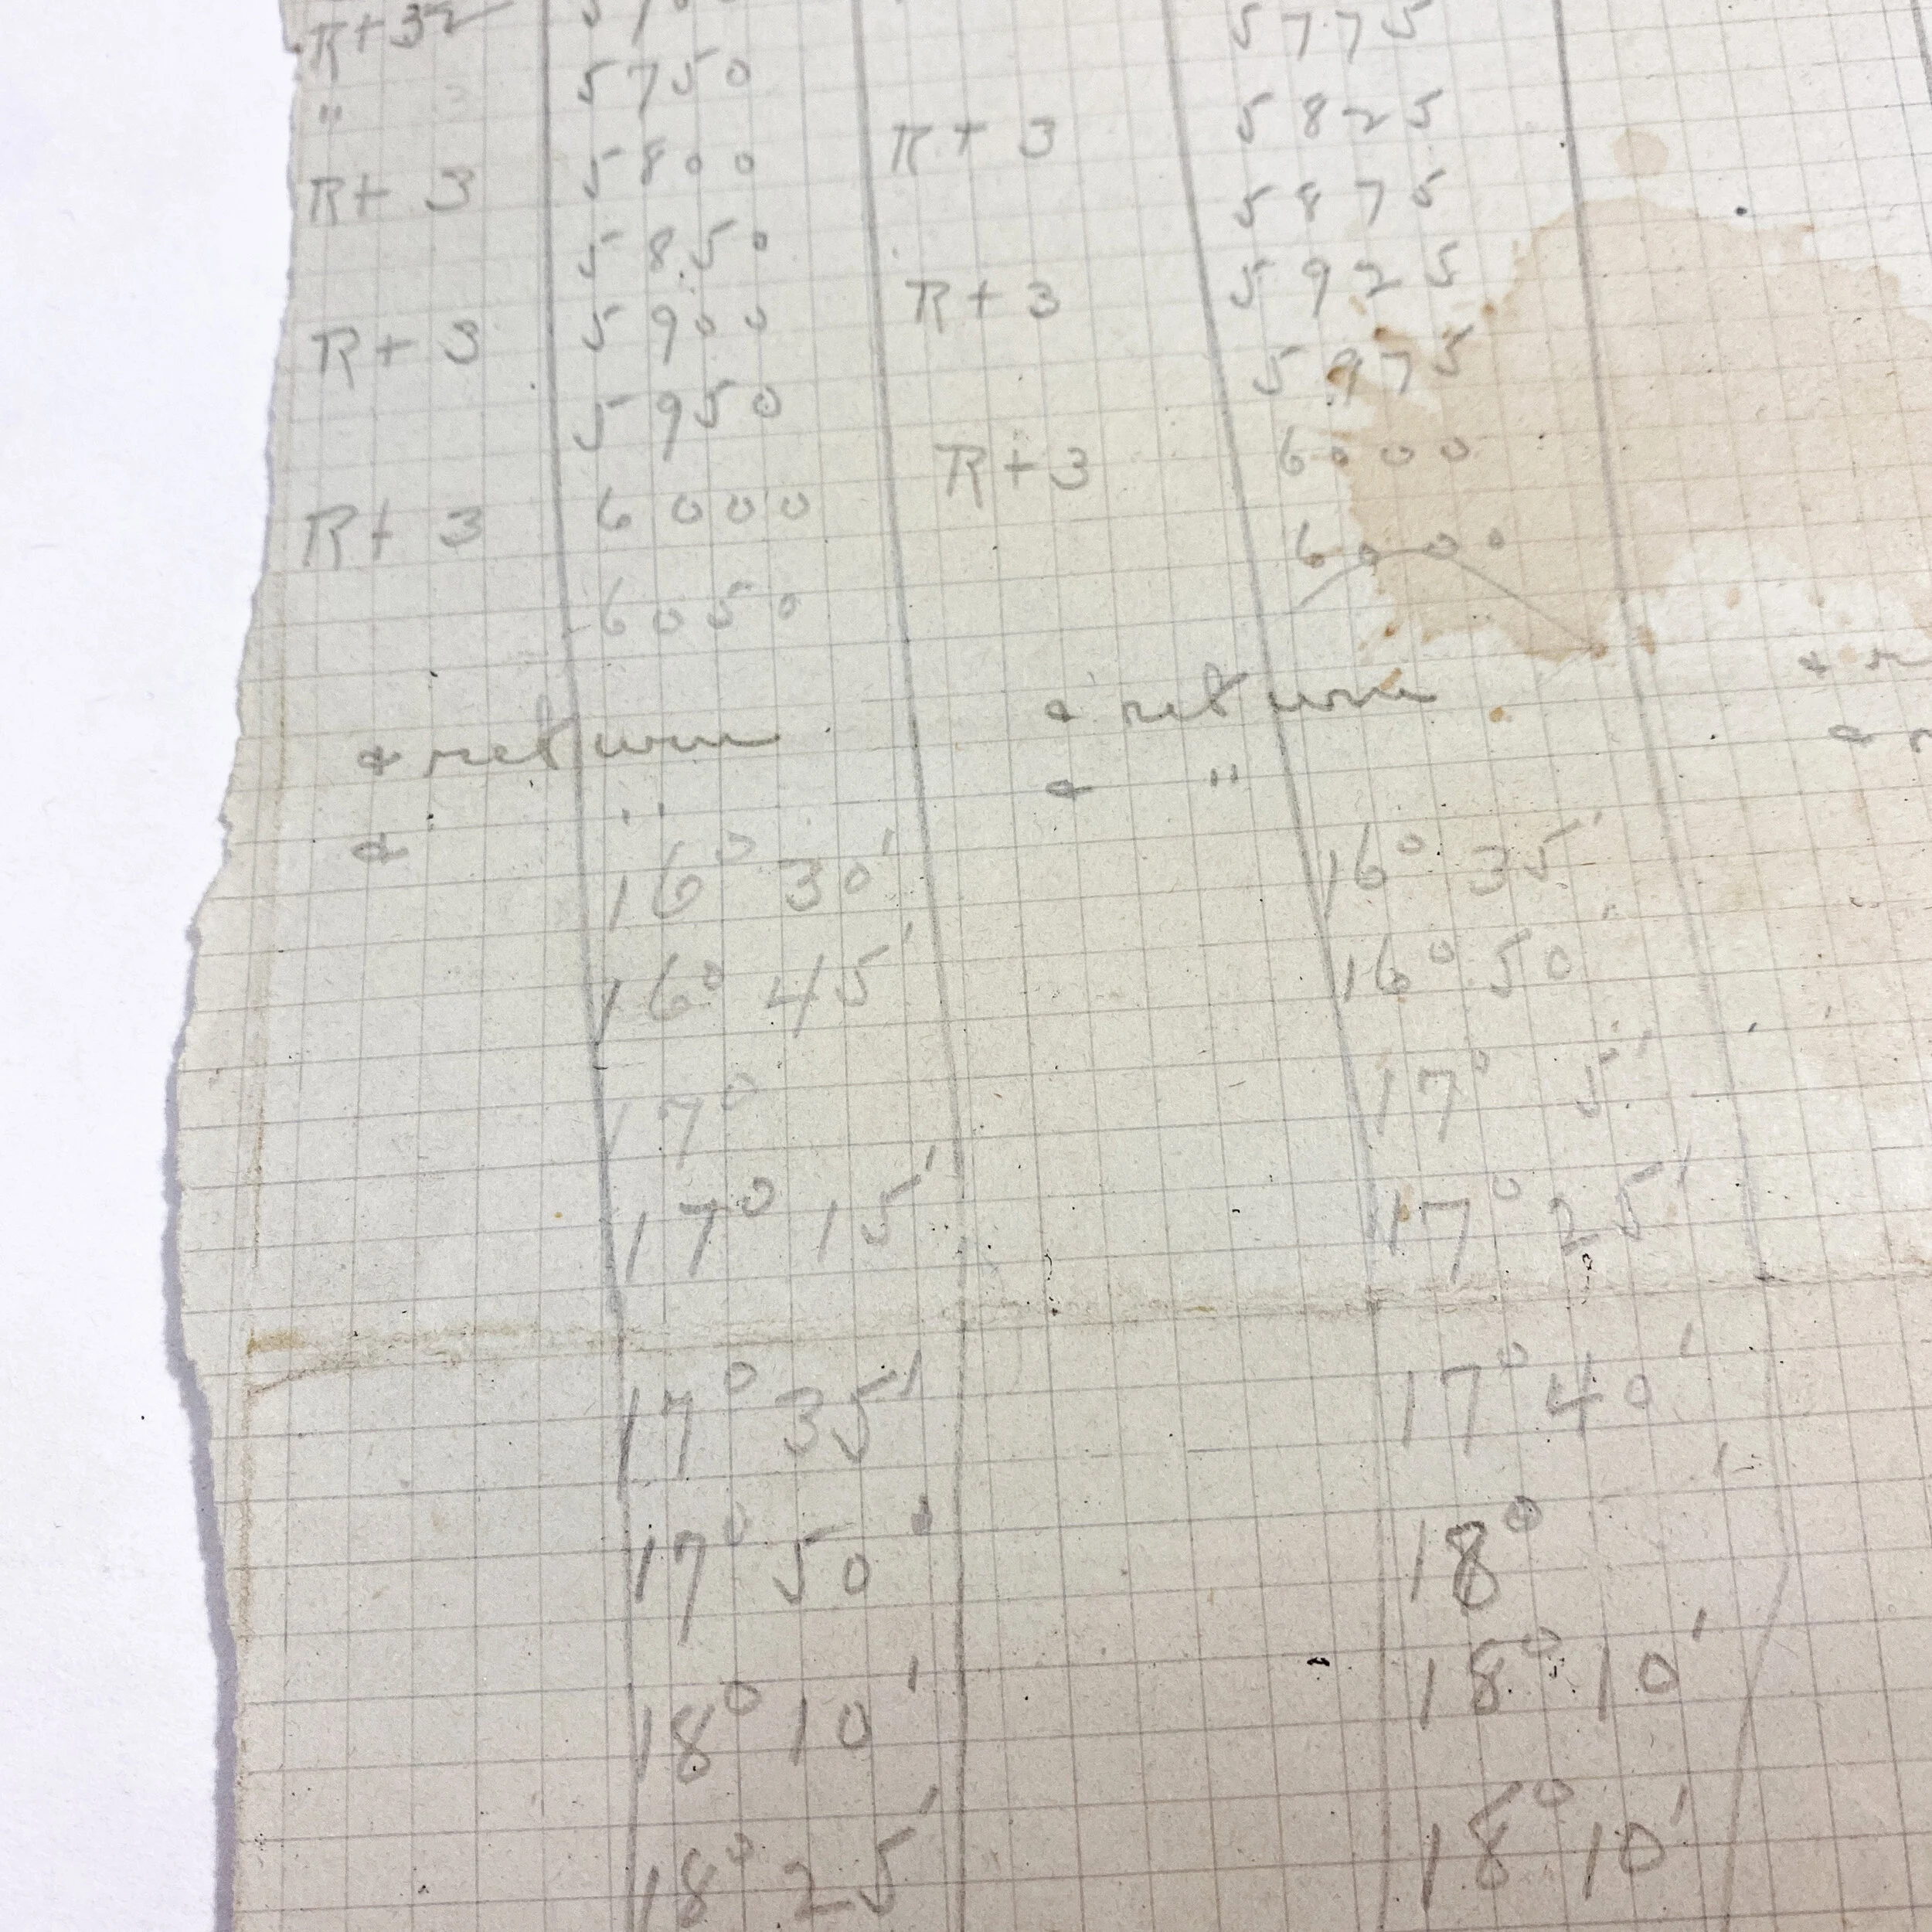 R+3
5775
" 5750
R+ 3 5825
R+ 3 5800
5875
5850
R+ 3 5925
R+ 3 5900
5975
5950
R+3 6000
R+ 3 6000
6000
6050
& return & return
& " & "
16° 30' 16° 35'
16° 45' 16° 50'
17° 17° 5'
17° 15' 17° 25'
17° 35' 17° 40'
17° 50' 18°
18° 10' 18° 10'
18° 25' 18° 10'